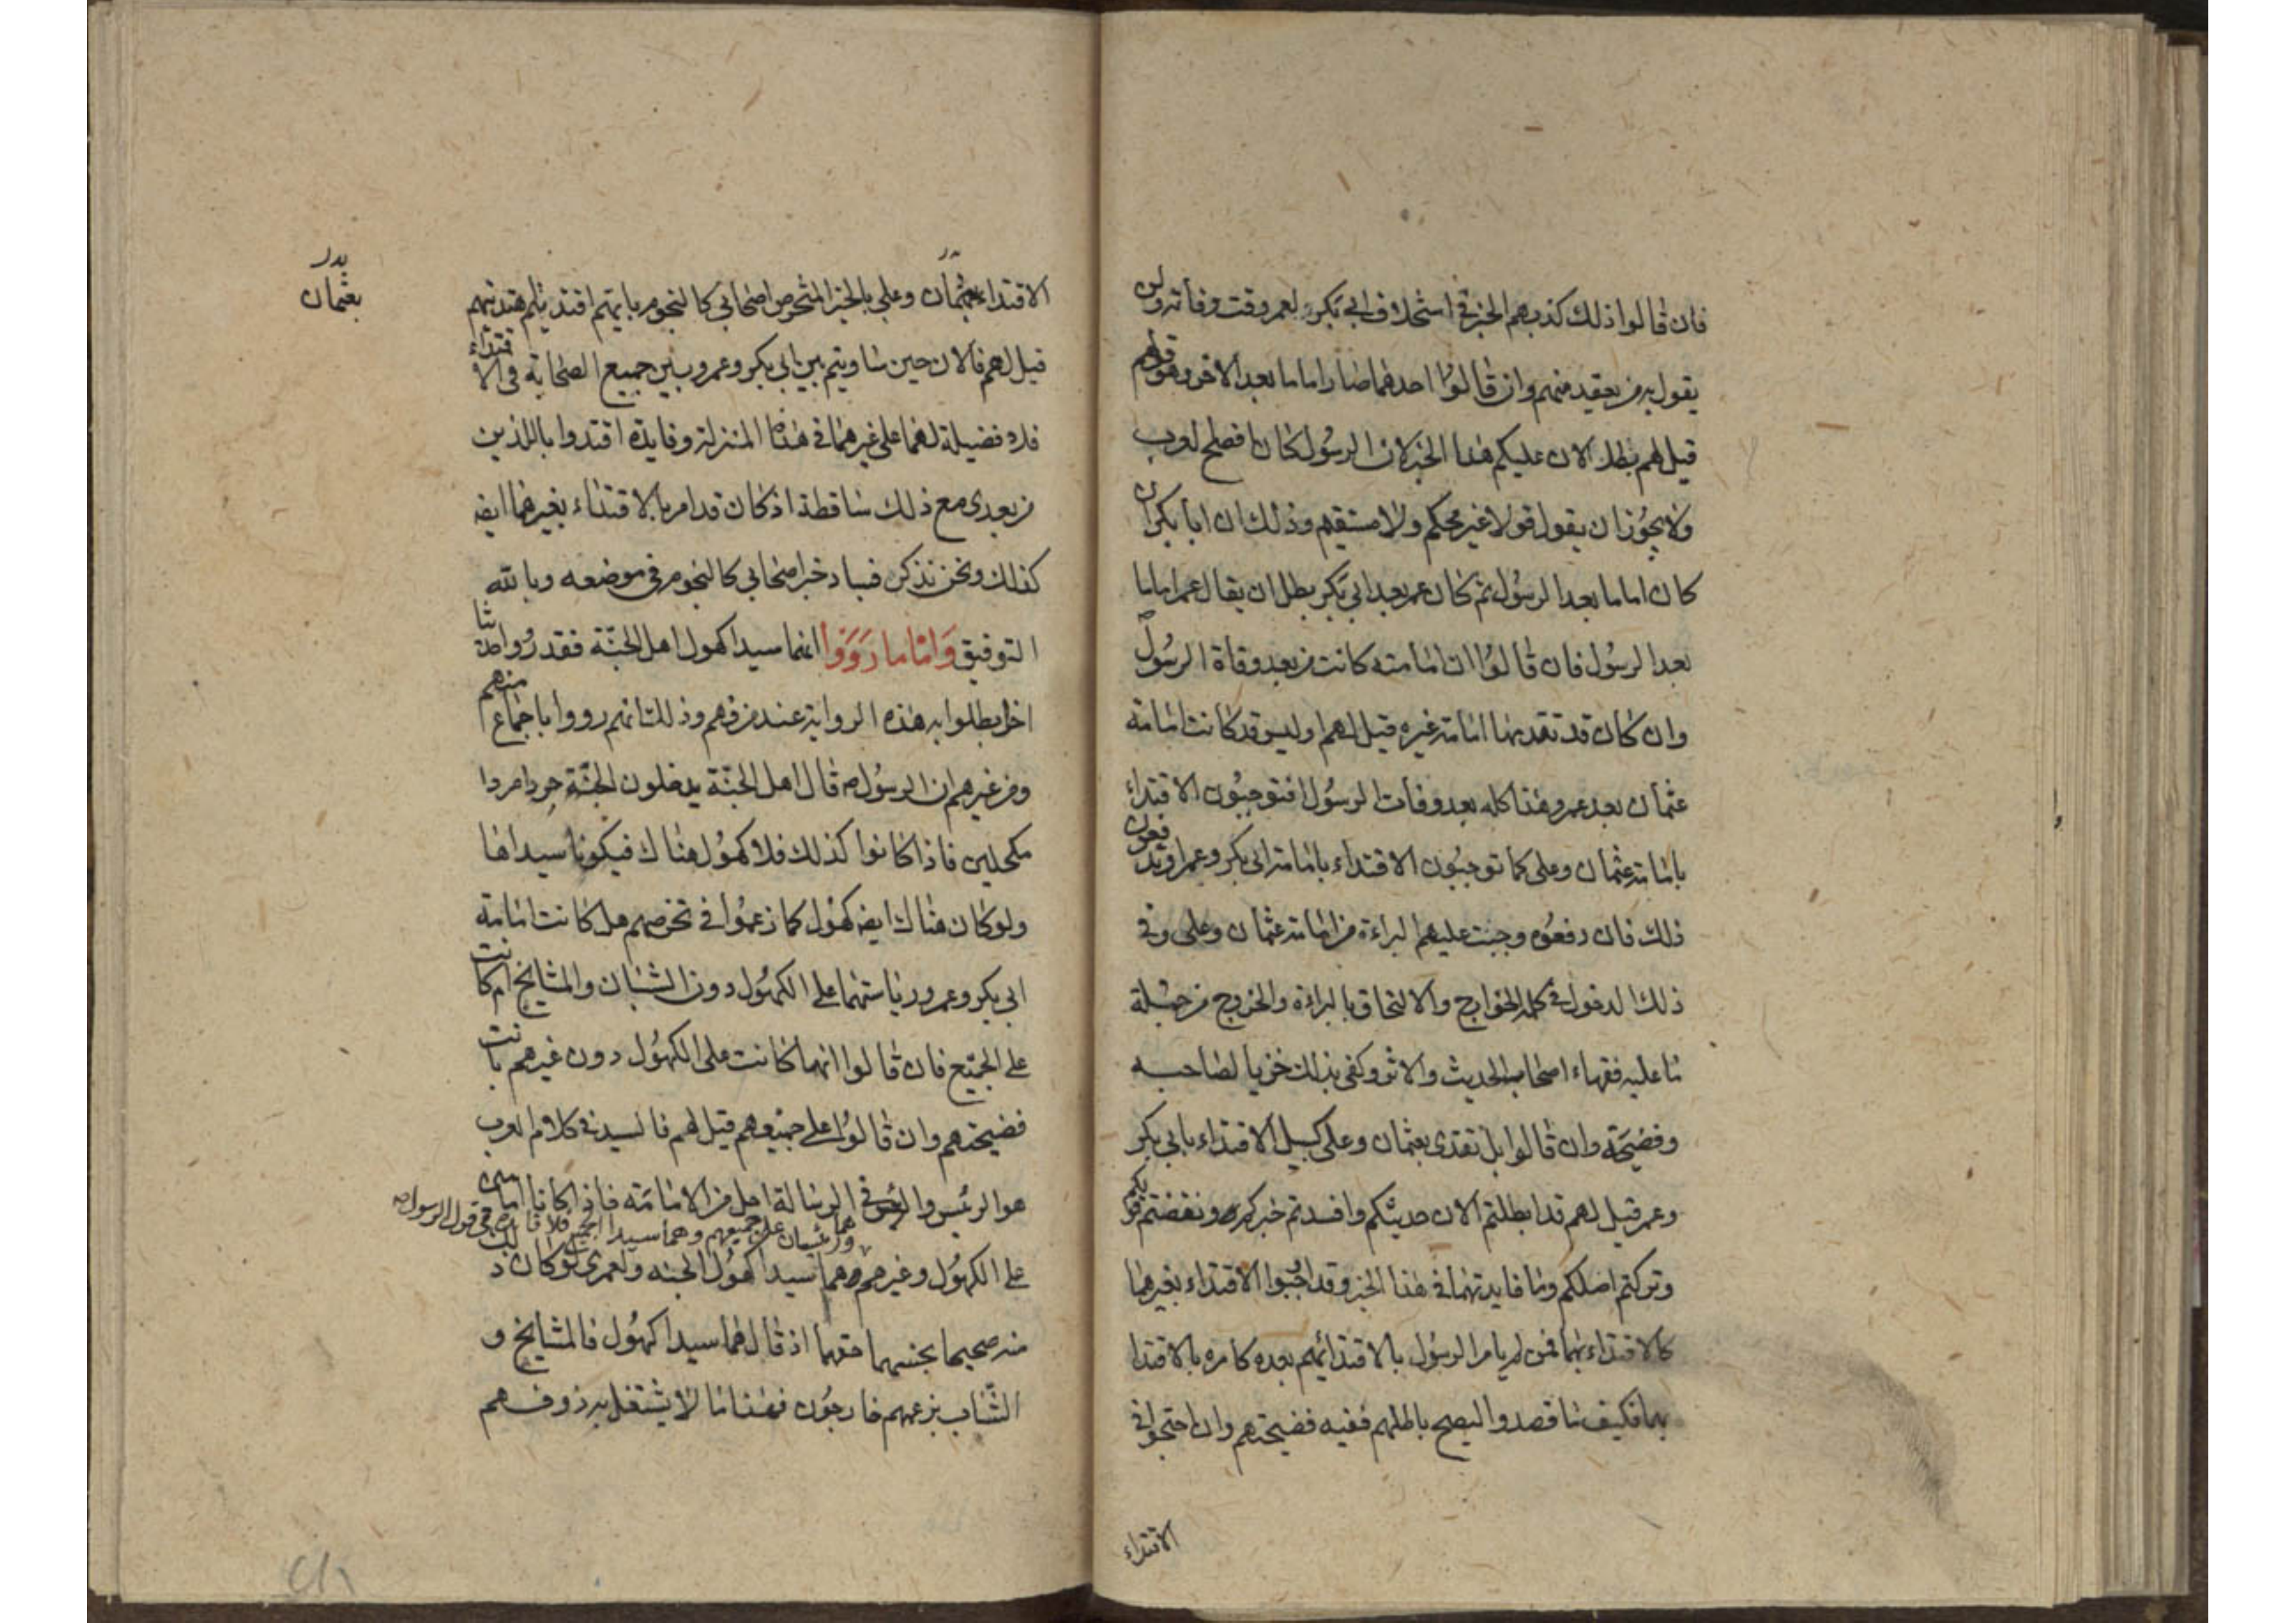 فان قالوا ذلك كذبهم الخبر في استخلاف ابي بكر لعمر وقت وفاته ولن
يقول به من يعقد منهم وان قالوا احدهما صار اماما بعد الاخر وهو قولهم
قيل لهم بطل الان عليكم هذا الخبر لان الرسول كان افصح العرب
ولا يجوز ان يقول قولا غير محكم ولا مستقيم وذلك ان ابا بكر ان
كان اماما بعد الرسول ثم كان عمر بعد ابي بكر بطل ان يقال عمر اماما
بعد الرسول فان قالوا ان امامته كانت من بعد وفاة الرسول
وان كان قد تقدمها امامة غيره قيل لهم اوليس قد كانت امامة
عثمان بعد عمر وهذا كله بعد وفات الرسول افتوجبون الاقتداء
بامامة عثمان وعلى كما توجبون الاقتداء بامامة ابي بكر وعمر او تدفعون
ذلك فان دفعوه وجبت عليهم البراءة من امامة عثمان وعلى وفي
ذلك الدخول في كلمة الخوارج والالتحاق بالبراءة والخروج من جملة
ما عليه فقهاء اصحاب الحديث والاثر وكفى بذلك خزيا لصاحبه
وفضيحة وان قالوا بل نقتدى بعثمان وعلى كسبيل الاقتداء بابي بكر
وعمر قيل لهم قد ابطلتم الان حديثكم وافسدتم خبركم ونقضتم قولكم
وتركتم اصلكم وما فايدتهما في هذا الخبر وقد اوجبوا الاقتداء بغيرهما
كالاقتداء بهما فمن لم يامر الرسول بالاقتدائهم بعده كامره بالاقتدا
بهما فكيف ما قصدوا ليصح باطلهم ففيه فضيحتهم وان احتجوا في
الاقتداء
الاقتداء بعثمان وعلي بالخبر المتخرص اصحابي كالنجوم بايهم اقتديتم اهتديتم
بدر
بعثمان
قيل لهم فالان حين ساويتم بين ابي بكر وعمر وبين جميع الصحابة في الاقتداء
فلا فضيلة لهما على غيرهما في هذه المنزلة وفايدة اقتدوا باللذين
من بعدى مع ذلك ساقطة اذ كان قد امر بالاقتداء بغيرهما ايض
كذلك ونحن نذكر فساد خبر اصحابي كالنجوم في موضعه وبالله
التوفيق وَامّا ما رَوَوا انهما سيدا كهول اهل الجنّة فقد رُوا حديثا
اخر بطلوا به هذه الرواية عند من فهم وذلك انهم رووا باجماع منهم
ومن غيرهم ان الرسول ص قال اهل الجنّة يدخلون الجنّة جردا مردا
مكحلين فاذا كانوا كذلك فلا كهول هناك فيكونا سيداها
ولو كان هناك ايض كهول كما زعموا في تخرصهم هل كانت امامة
ابي بكر وعمر ورياستهما على الكهول دون الشبان والمشايخ ام كانت
على الجميع فان قالوا انهما كانت على الكهول دون غيرهم بانت
فضيحتهم وان قالوا على جميعهم قيل لهم فالسيد في كلام العرب
هو الرئيس و في الرسالة اجل من الامامة فاذا كانا امامين
هما ورئيسان على جميعهم وهما سيدا الجميع فلا فايدة في قول الرسول ص
على الكهول وغيرهم هما سيدا كهول الجنه ولعمرى لو كان ذلك
منه صحيحا بخسهما حقهما اذ قال هما سيدا كهول فالمشايخ و
الشّباب بزعمهم خارجون فهذا ما لا يشتغل به ذو فهم